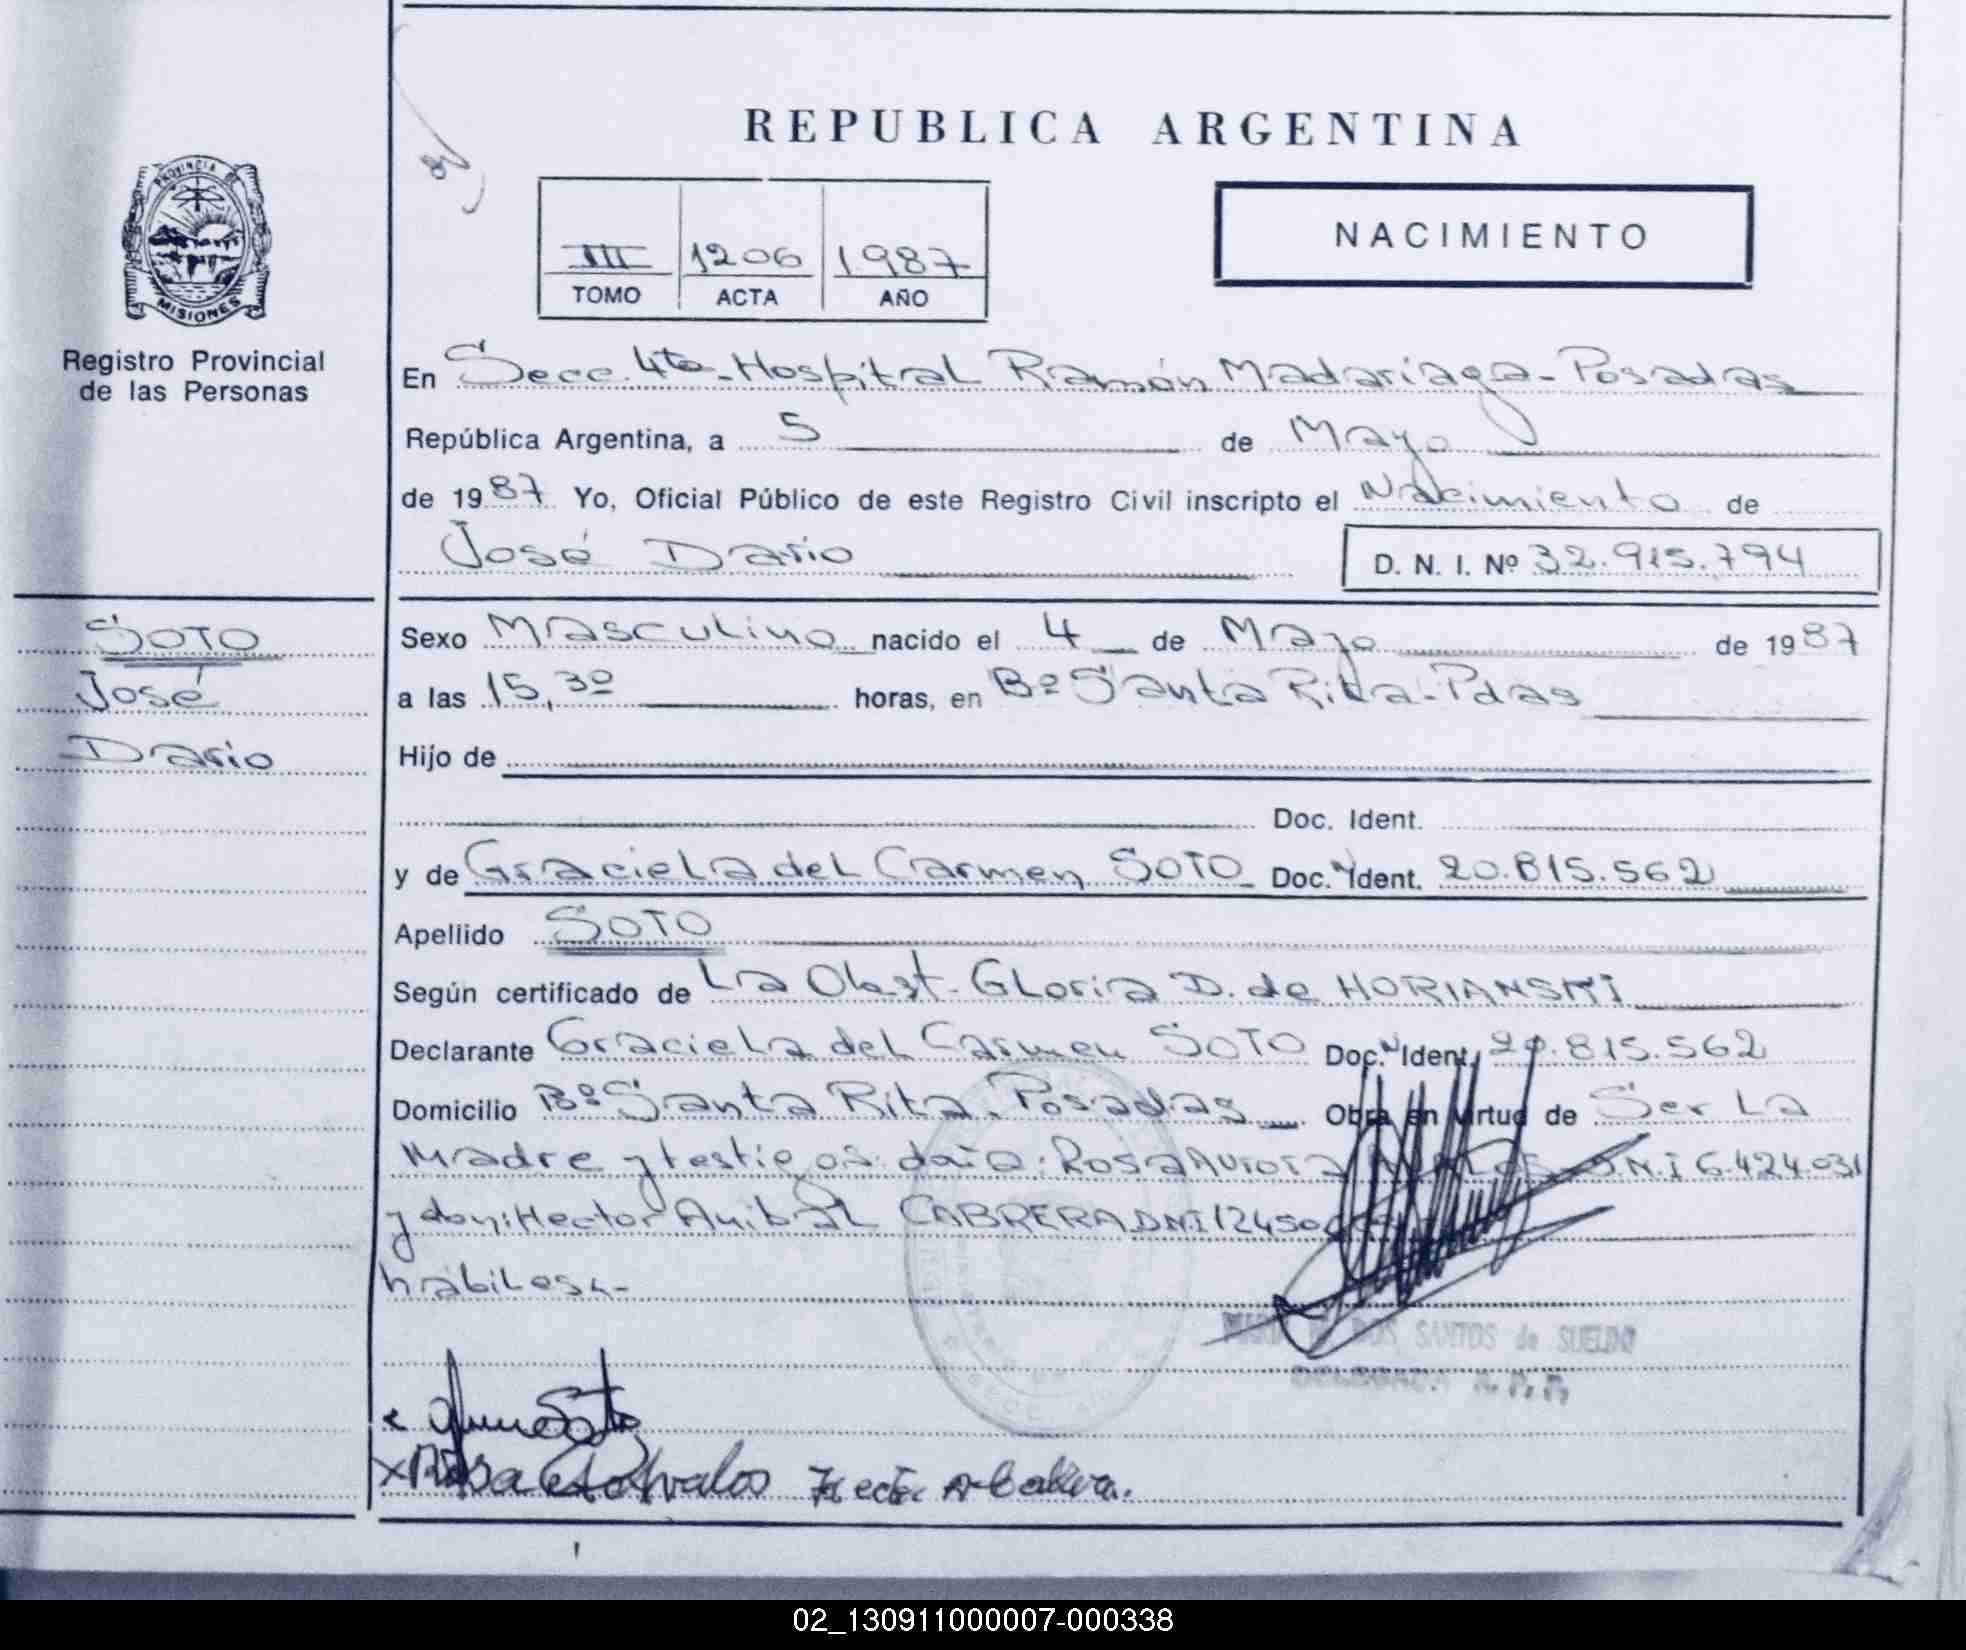 REPUBLICA ARGENTINA
NACIMIENTO
III 1206 1987
TOMO ACTA AÑO
PROVINCIA DE
MISIONES
Registro Provincial
de las Personas
En Secc. 4ta - Hospital Ramón Madariaga - Posadas
República Argentina, a 5 de Mayo
de 1987 Yo, Oficial Público de este Registro Civil inscripto el Nacimiento de
José Dario D. N. I. Nº 32.915.794
SOTO
José
Dario
Sexo Masculino nacido el 4 de Mayo de 1987
a las 15,30 horas, en Bº Santa Rita - Pdas
Hijo de
Doc. Ident.
y de Graciela del Carmen SOTO Doc. Ident. 20.815.562
Apellido SOTO
Según certificado de La Obst. Gloria D. de HORIANSKI
Declarante Graciela del Carmen SOTO Doc. Ident. 20.815.562
Domicilio Bº Santa Rita - Posadas Obra en virtud de Ser La
Madre y testigos: doña: Rosa Aurora D.N.I 6.424.031
y don: Hector Anibal CABRERA DNI 12450
hábiles.-
DOS SANTOS de SUELDO
02_130911000007-000338